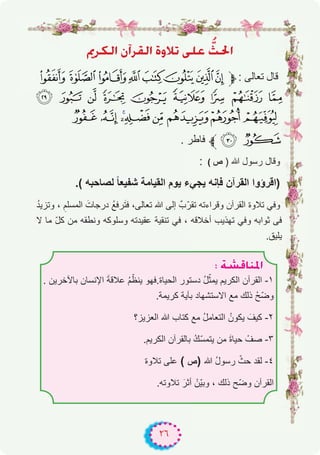 الحثُّ على تلاوة القرآن الكريم
قال تعالى : ﴿ إِنَّ الَّذِينَ يَتْلُونَ كِتَابَ اللَّهِ وَأَقَامُوا الصَّلَاةَ وَأَنفَقُوا
مِمَّا رَزَقْنَاهُمْ سِرًّا وَعَلَانِيَةً يَرْجُونَ تِجَارَةً لَّن تَبُورَ ٢٩
لِيُوَفِّيَهُمْ أُجُورَهُمْ وَيَزِيدَهُم مِّن فَضْلِهِ إِنَّهُ غَفُورٌ
شَكُورٌ ٣٠ ﴾ فاطر .
وقال رسول الله ( ص ) :
(اقرؤوا القرآن فإنه يجيء يوم القيامة شفيعاً لصاحبه ).
وفي تلاوة القرآن وقراءته تقرّبٌ إلى الله تعالى، فترفعُ درجات المسلم ، وتزيدُ
في ثوابه وفي تهذيب أخلاقه ، في تنقية عقيدته وسلوكه ونطقه من كلّ ما لا
يليق.
المناقشة :
١- القرآن الكريم يمثّلُ دستور الحياة.فهو ينظّمُ علاقةَ الإنسان بالآخرين .
وضّحْ ذلك مع الاستشهاد بآية كريمة.
٢- كيفَ يكونُ التعاملُ مع كتاب الله العزيز؟
٣- صفْ حياةَ من يتمسّكُ بالقرآن الكريم.
٤- لقد حثَّ رسولُ الله (ص ) على تلاوة
القرآن وضّح ذلك ، وبيّنْ أثرَ تلاوته.
٢٦